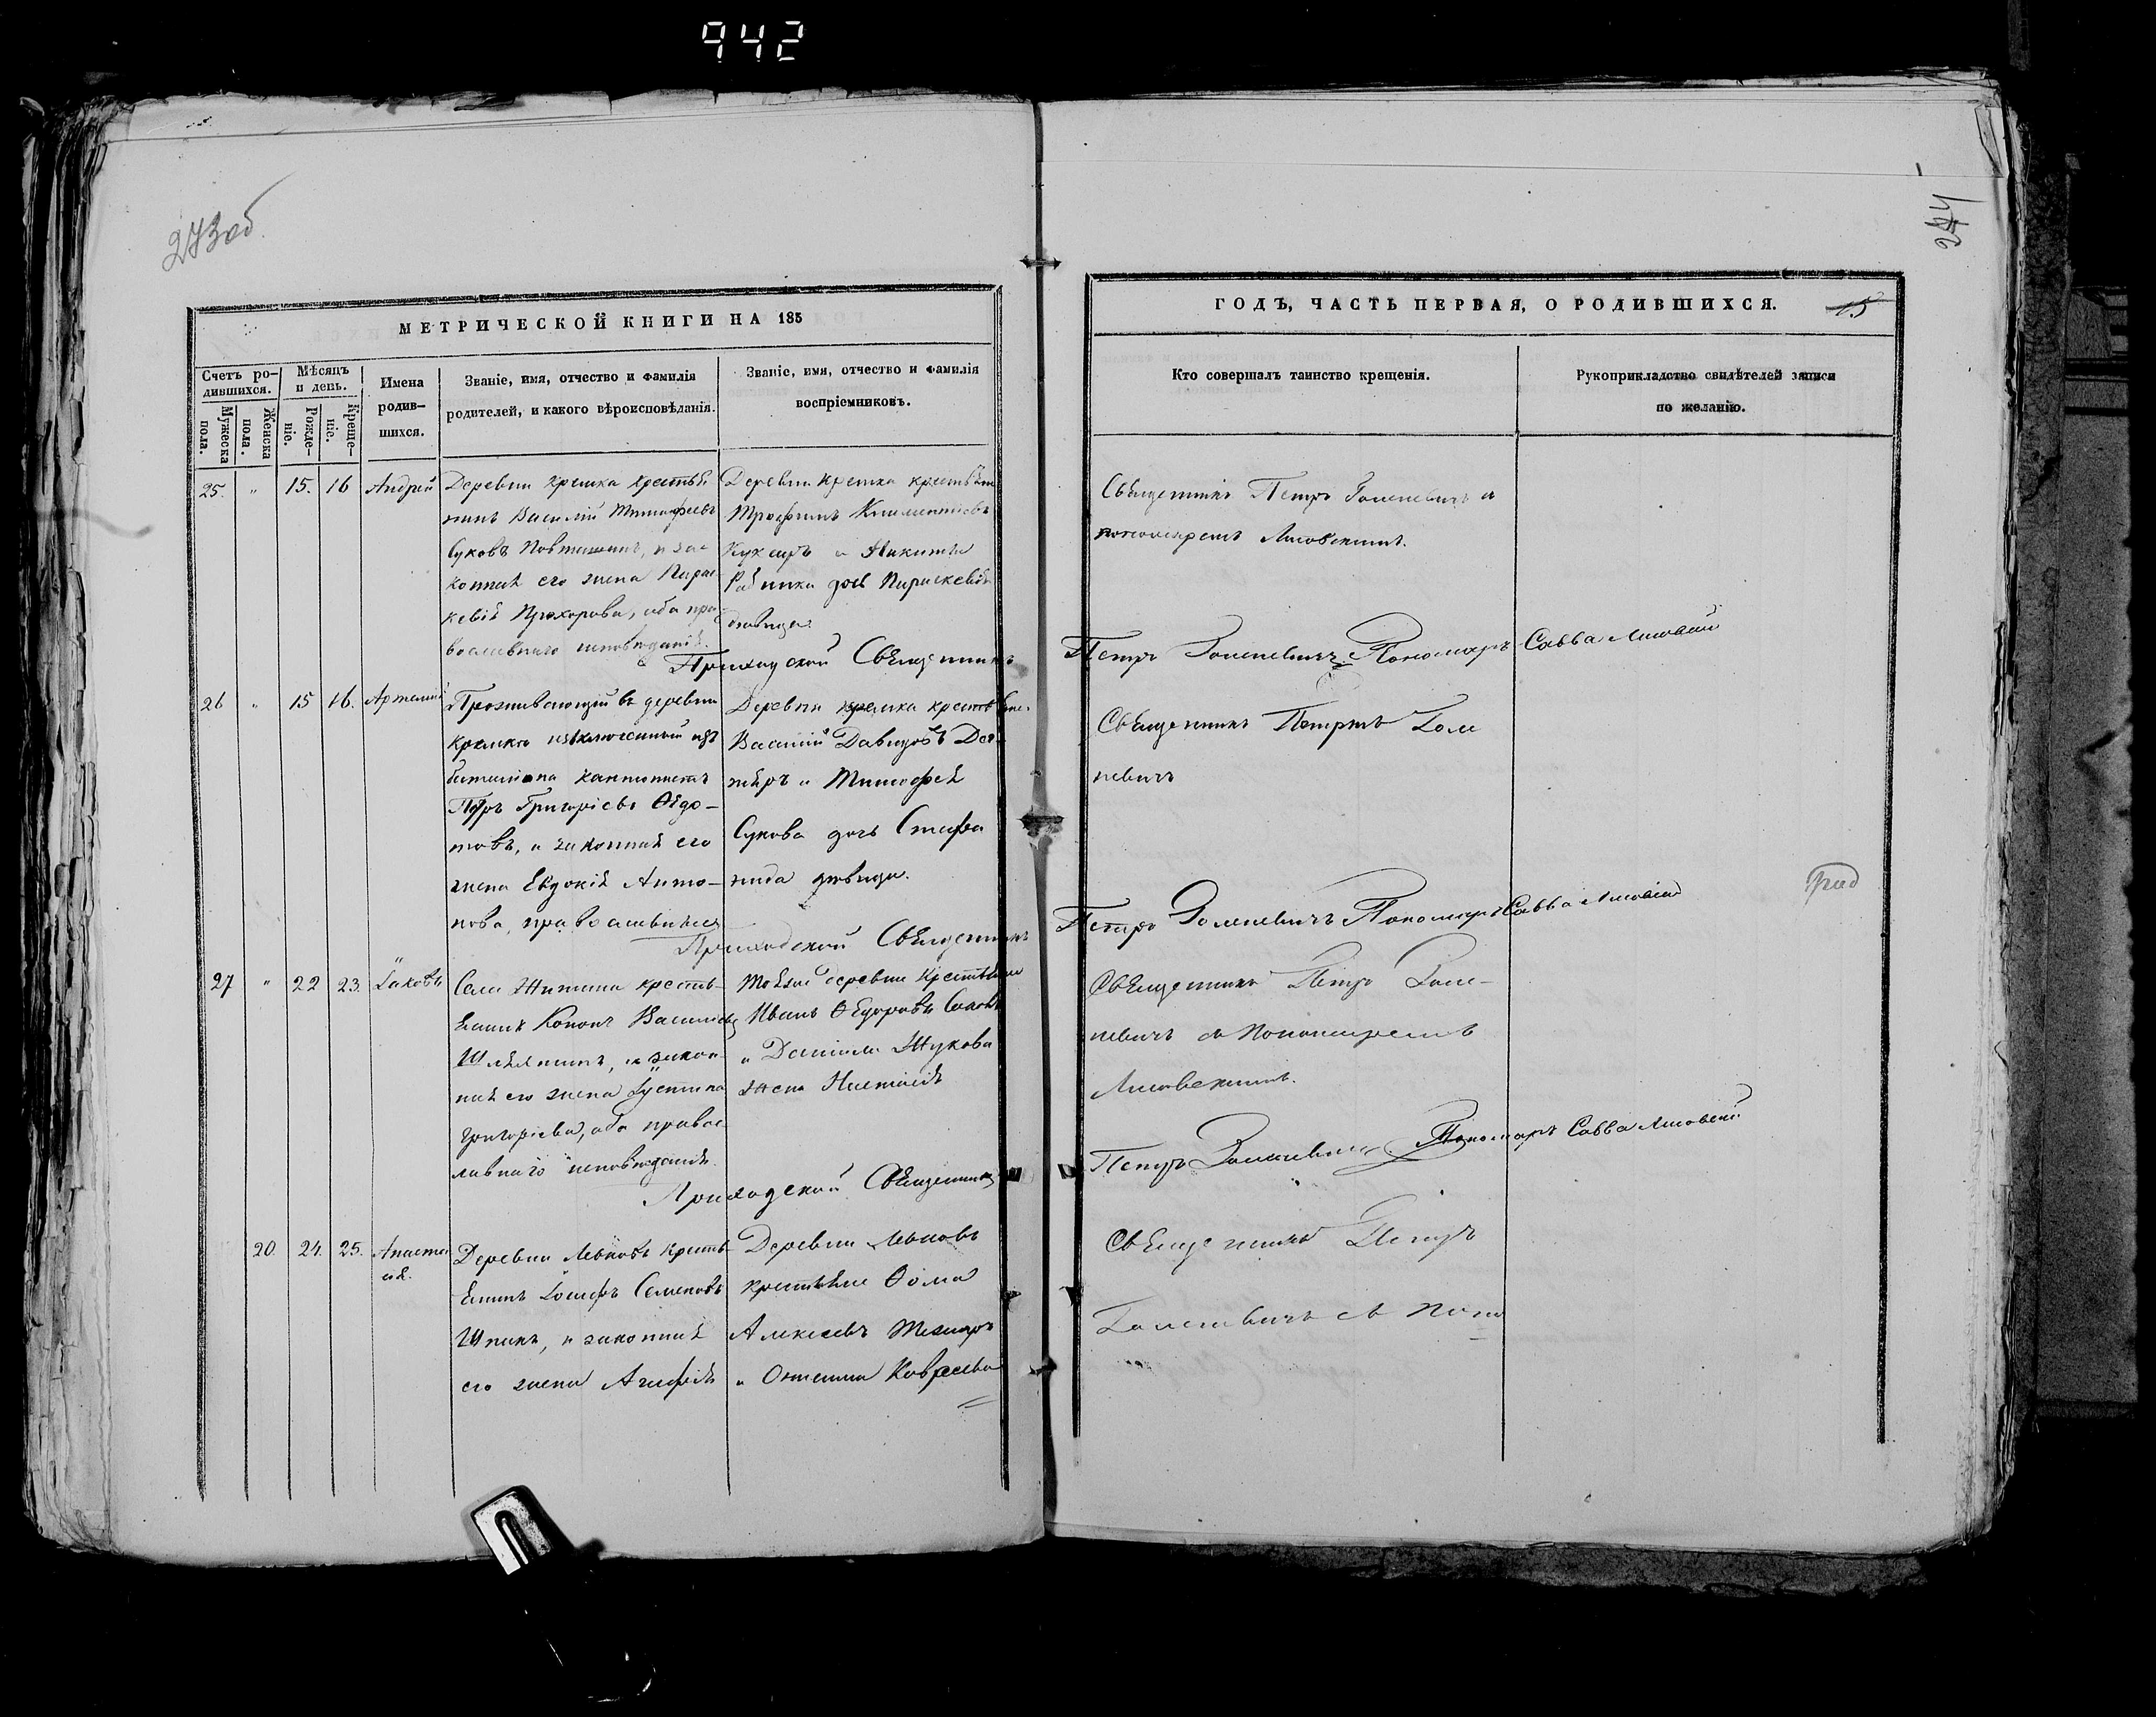 942
273об.
244
МЕТРИЧЕСКОЙ КНИГИ НА 185
Счетъ ро-
дившихся.
Мужеска
пола.
Женска
пола.
Мѣсяцъ
и день.
Рожде-
ніе.
Креще-
ніе.
Имена
родив-
шихся.
Званіе, имя, отчество и фамилія
родителей, и какого вѣроисповѣданія.
Званіе, имя, отчество и фамилія
воспріемниковъ.
25. " 15. 16 Андрей
Деревни Кремка крестья
нинъ Василій Тимофеевъ
Суковъ и зас
конная его жена Парас
кевія Прохорова, оба пра
вославнаго исповѣданія.
Деревни Кремка крестьяне
Трофимъ Климентіевъ
и Никиты
дочь Параскевія
дѣвица
Приходской Священникъ
26 " 15 16. Артемій
Проживающій въ деревни
Кремка изключенный изъ
баталіона кантонистъ
Петръ Григорієвъ Ѳедо-
товъ, и законная его
жена Евдокія Анто-
нова, православныя
Деревни Кремка крестьяне
Василій Давидовъ Дег
тяръ и Тимофея
Сукова дочь Стефа
нида дѣвица.
Приходской Священникъ
27 " 22 23. Іаковъ
Села Житина кресть-
янинъ Кононъ Василіевъ
и закон
ная его жена Іустина
Григоріева, оба правос
лавнаго исповѣданія.
деревни крестьяне
Иванъ Ѳедоровъ
и Даніила Жукова
жена Настасія
Приходской Священникъ
20. 24. 25. Анаста
сія.
Деревни Леоновъ кресть
янинъ Іосифъ Семеновъ
Шпакъ, и законная
его жена Агафія
Деревни Леоновъ
крестьяне Ѳома
Алексеевъ
и
ГОДЪ, ЧАСТЬ ПЕРВАЯ, О РОДИВШИХСЯ.
15
Кто совершалъ таинство крещенія.
Рукоприкладство свидѣтелей записи
по желанію.
Священникъ Петръ Голеневичъ и
пономаремъ Лисовскимъ.
Петръ Голеневичъ Пономаръ Савва Лисовскій
Священникъ Петръ Голе
невичъ
Петръ Голеневичъ Пономаръ Савва Лисовскій
Священникъ Петръ Голе-
невичъ съ Пономаремъ
Лисовскимъ.
Петръ Голеневичъ Пономаръ Савва Лисовскій
Священникъ Петръ
Голеневичъ съ Поно